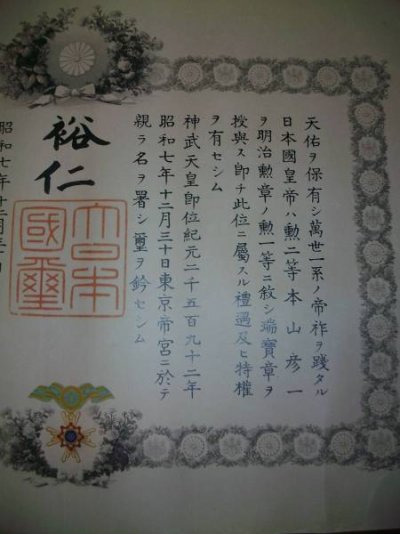 天佑ヲ保有シ萬世一系ノ帝祚ヲ踐タル
日本國皇帝ハ勲二等本山彦一
ヲ明治勲章ノ勲一等ニ敘シ瑞寶章ヲ
授與ス即チ此位ニ屬スル禮遇及ヒ特權
ヲ有セシム
神武天皇即位紀元二千五百九十二年
昭和七年十二月三十日東京帝宮ニ於テ
親ラ名ヲ署シ璽ヲ鈐セシム
裕仁
大日本
國璽
昭和七年十二月三十日